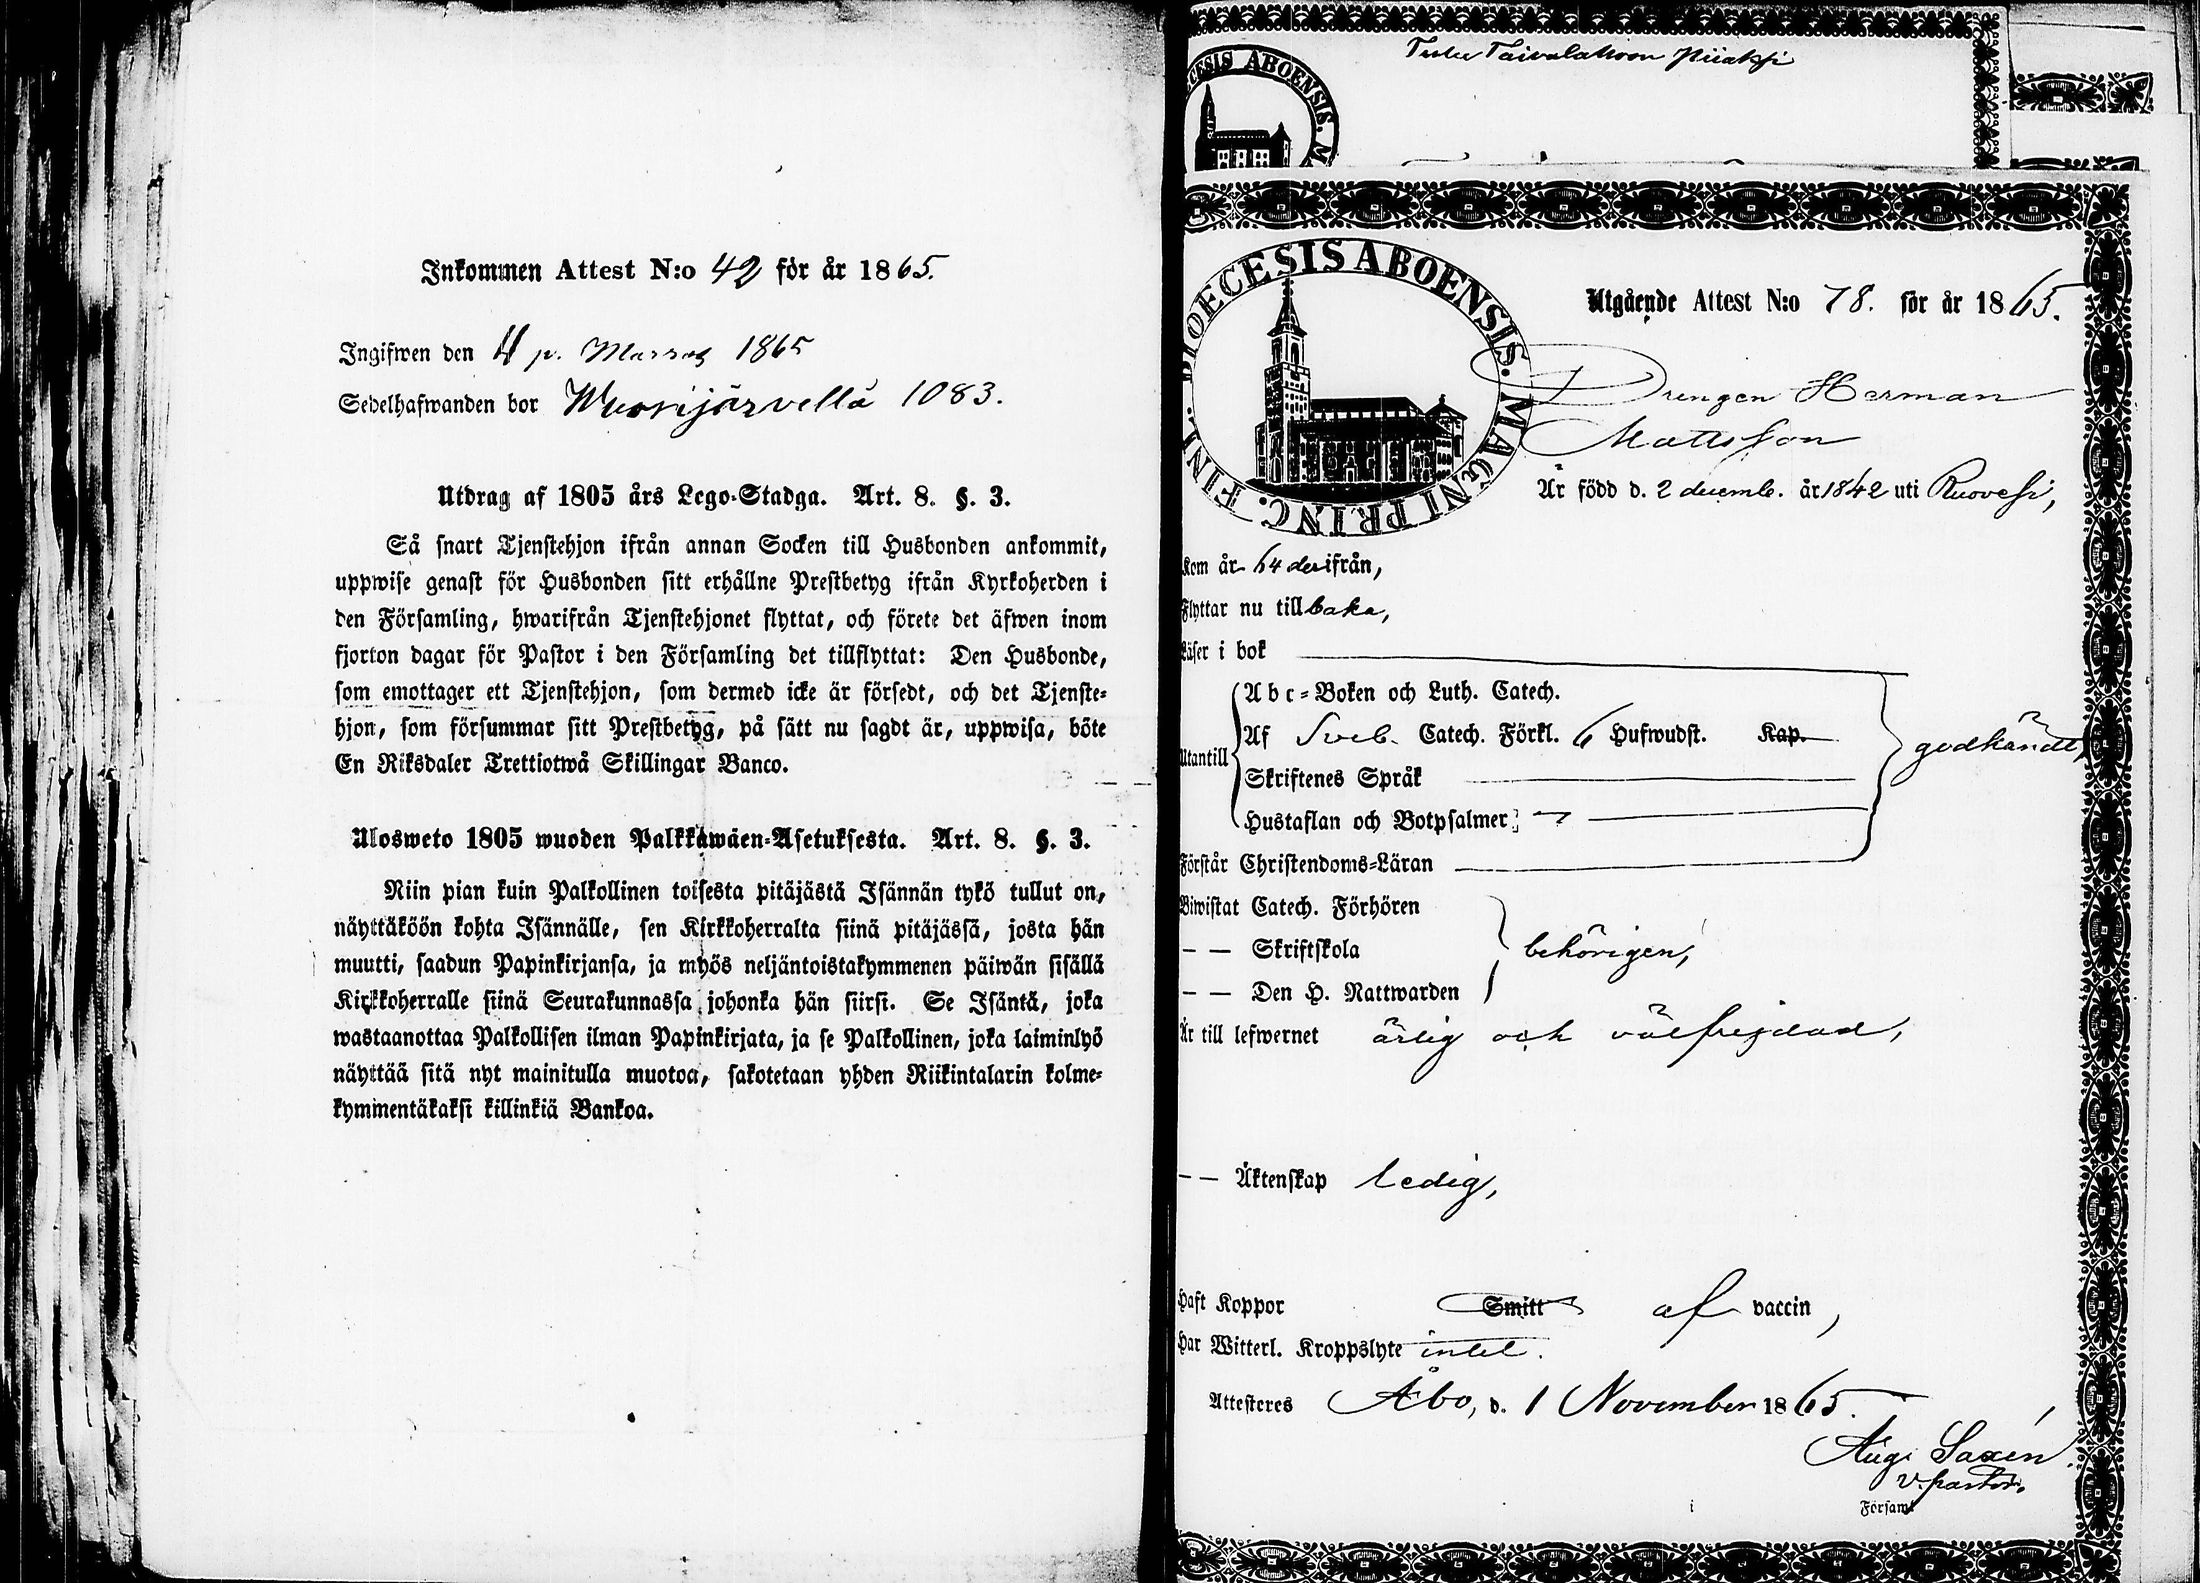 Inkommen Attest N:o 42 för år 1865.
Ingifwen den 4 p. Marras 1865
Sedelhafwanden bor Wuorijärvellä 1083.
Utdrag af 1805 års Lego-Stadga. Art. 8. §. 3.
Så snart Tjenstehjon ifrån annan Socken till Husbonden ankommit,
uppwise genast för Husbonden sitt erhållne Prestbetyg ifrån Kyrkoherden i
den Församling, hwarifrån Tjenstehjonet flyttat, och förete det äfwen inom
fjorton dagar för Pastor i den Församling det tillflyttat: Den Husbonde,
som emottager ett Tjenstehjon, som dermed icke är försedt, och det Tjenste-
hjon, som försummar sitt Prestbetyg, på sätt nu sagdt är, uppwisa, böte
En Riksdaler Trettiotwå Skillingar Banco.
Ulosweto 1805 wuoden Palkkawäen-Asetuksesta. Art. 8. §. 3.
Niin pian kuin Palkollinen toisesta pitäjästä Isännän tykö tullut on,
näyttäköön kohta Isännälle, sen Kirkkoherralta siinä pitäjässä, josta hän
muutti, saadun Papinkirjansa, ja myös neljäntoistakymmenen päiwän sisällä
Kirkkoherralle siinä Seurakunnassa johonka hän siirsi. Se Isäntä, joka
wastaanottaa Palkollisen ilman Papinkirjata, ja se Palkollinen, joka laiminlyö
näyttää sitä nyt mainitulla muotoa, sakotetaan yhden Riikintalarin kolme-
kymmentäkaksi killinkiä Bankoa.
DIOECESIS ABOENSIS. MAGNI PRINC. FINL.
Utgående Attest N:o 78. för år 1865.
Drengen Herman
Mattsson
Är född d. 2 decemb. år 1842 uti Ruovesi,
Kom år 64 derifrån,
Flyttar nu tillbaka,
Läser i bok
Abc-Boken och Luth. Catech.
Utantill Af Sveb. Catech. Förkl. 6 Hufwudst. Kap. godkändt,
Skriftenes Språk
Hustaflan och Botpsalmer
Förstår Christendoms-Läran
Biwistat Catech. Förhören
— — Skriftskola behörigen,
— — Den H. Nattwarden
Är till lefwernet ärlig och välfrejdad,
— — Äktenskap ledig,
Haft Koppor Smitt af vaccin,
Har Witterl. Kroppslyte intet.
Attesteres Åbo, d. 1 November 1865.
Aug. Saxén
v. pastor.
i Församl